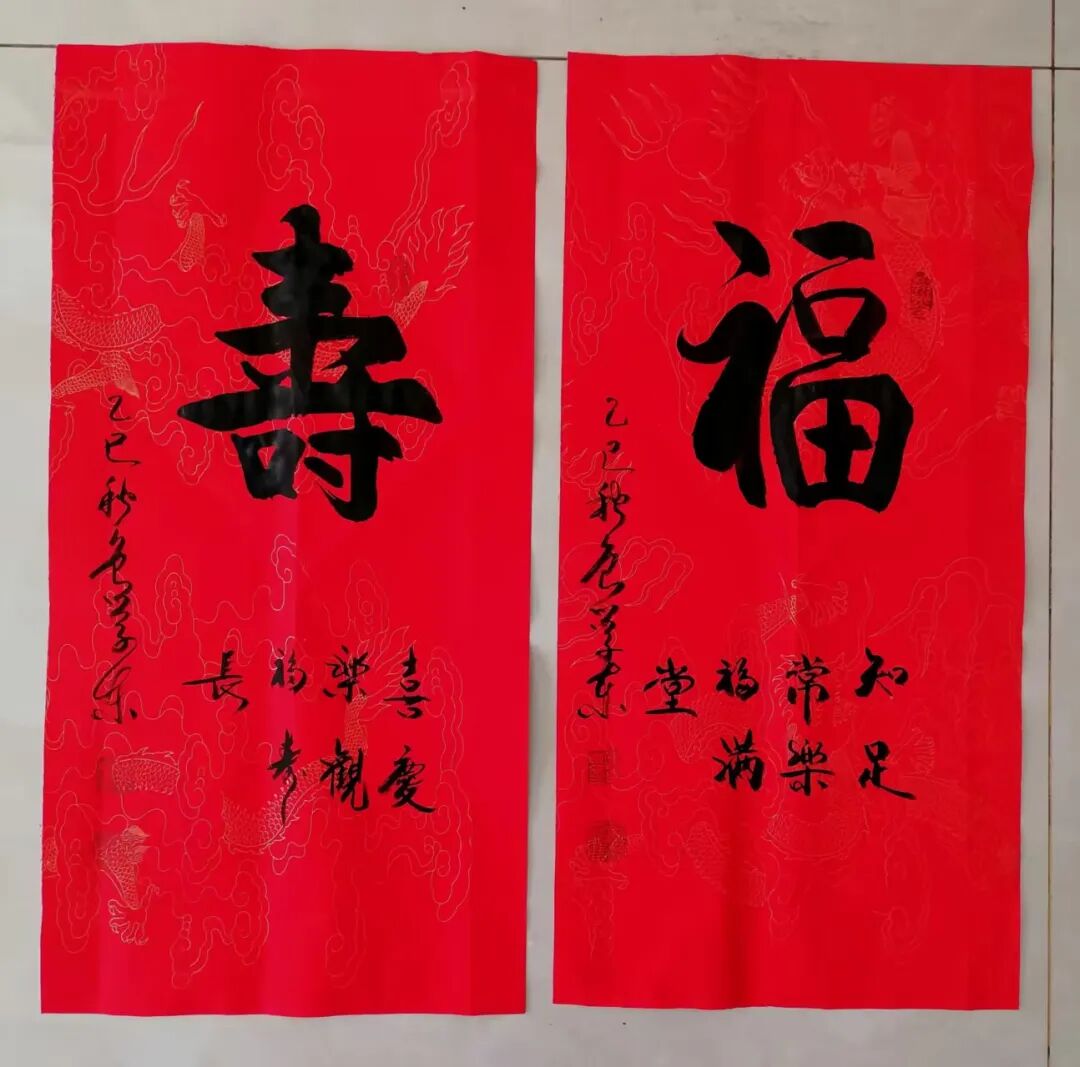 福
知足
常樂
福满
堂
乙巳秋学东
壽
喜慶
樂觀
福寿
長
乙巳秋学东